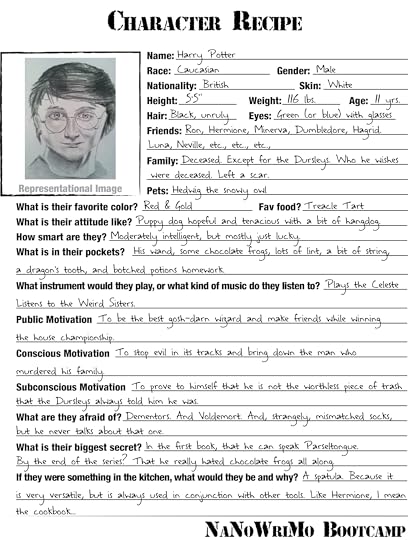 CHARACTER RECIPE
Name: Harry Potter
Race: Caucasian Gender: Male
Nationality: British Skin: White
Height: 5'5" Weight: 116 lbs. Age: 11 yrs.
Hair: Black, unruly Eyes: Green (or blue) with glasses
Friends: Ron, Hermione, Minerva, Dumbledore, Hagrid
Luna, Neville, etc., etc., etc.,
Family: Deceased. Except for the Dursleys. Who he wishes
were deceased. Left a scar.
Representational Image
Pets: Hedwig the snowy owl
What is their favorite color? Red & Gold Fav food? Treacle Tart
What is their attitude like? Puppy dog hopeful and tenacious with a bit of hangdog.
How smart are they? Moderately intelligent, but mostly just lucky.
What is in their pockets? His wand, some chocolate frogs, lots of lint, a bit of string,
a dragon's tooth, and botched potions homework.
What instrument would they play, or what kind of music do they listen to? Plays the Celeste
Listens to the Weird Sisters.
Public Motivation To be the best gosh-darn wizard and make friends while winning
the house championship.
Conscious Motivation To stop evil in its tracks and bring down the man who
murdered his family.
Subconscious Motivation To prove to himself that he is not the worthless piece of trash
that the Dursleys always told him he was.
What are they afraid of? Dementors. And Voldemort. And, strangely, mismatched socks,
but he never talks about that one.
What is their biggest secret? In the first book, that he can speak Parseltongue.
By the end of the series? That he really hated chocolate frogs all along.
If they were something in the kitchen, what would they be and why? A spatula. Because it
is very versatile, but is always used in conjunction with other tools. Like Hermione, I mean
the cookbook.
NANOWRIMO BOOTCAMP